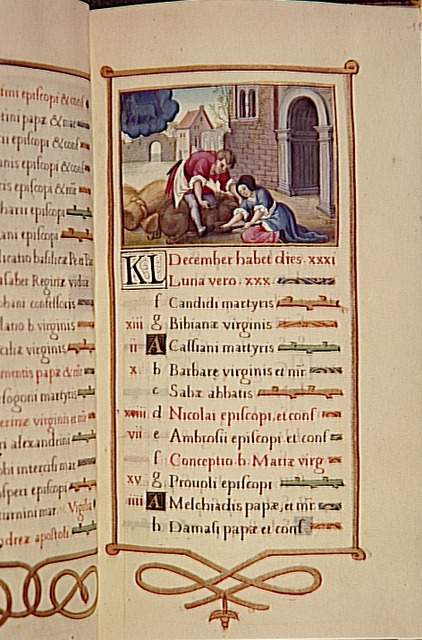 episcopi & conf
papæ & mar
episcopi & conf
episcopi & conf
episcopi & mr
episcopi
episcopi
basilicæ Pe. et Pa
Reginæ vidua
confessoris
b. virginis
virginis
mentis papæ & mr
sogoni martyris
erinæ virginis et mr
alexandrini
intercisi mar
episcopi
turnini mar. Vigilia
andreæ apostoli
KL December habet dies. xxxi
Luna vero. xxx.
f Candidi martyris
xiii g Bibianæ virginis
ii A Cassiani martyris
x. b Barbare virginis et mr
c Sabæ abbatis
xviii d Nicolai episcopi. et conf
vii e Ambrosii episcopi. et conf
f Conceptio. b. Mariæ virg
xv. g Prouoli episcopi
iiii A Melchiadis papæ, et mr
b Damasi papæ et conf